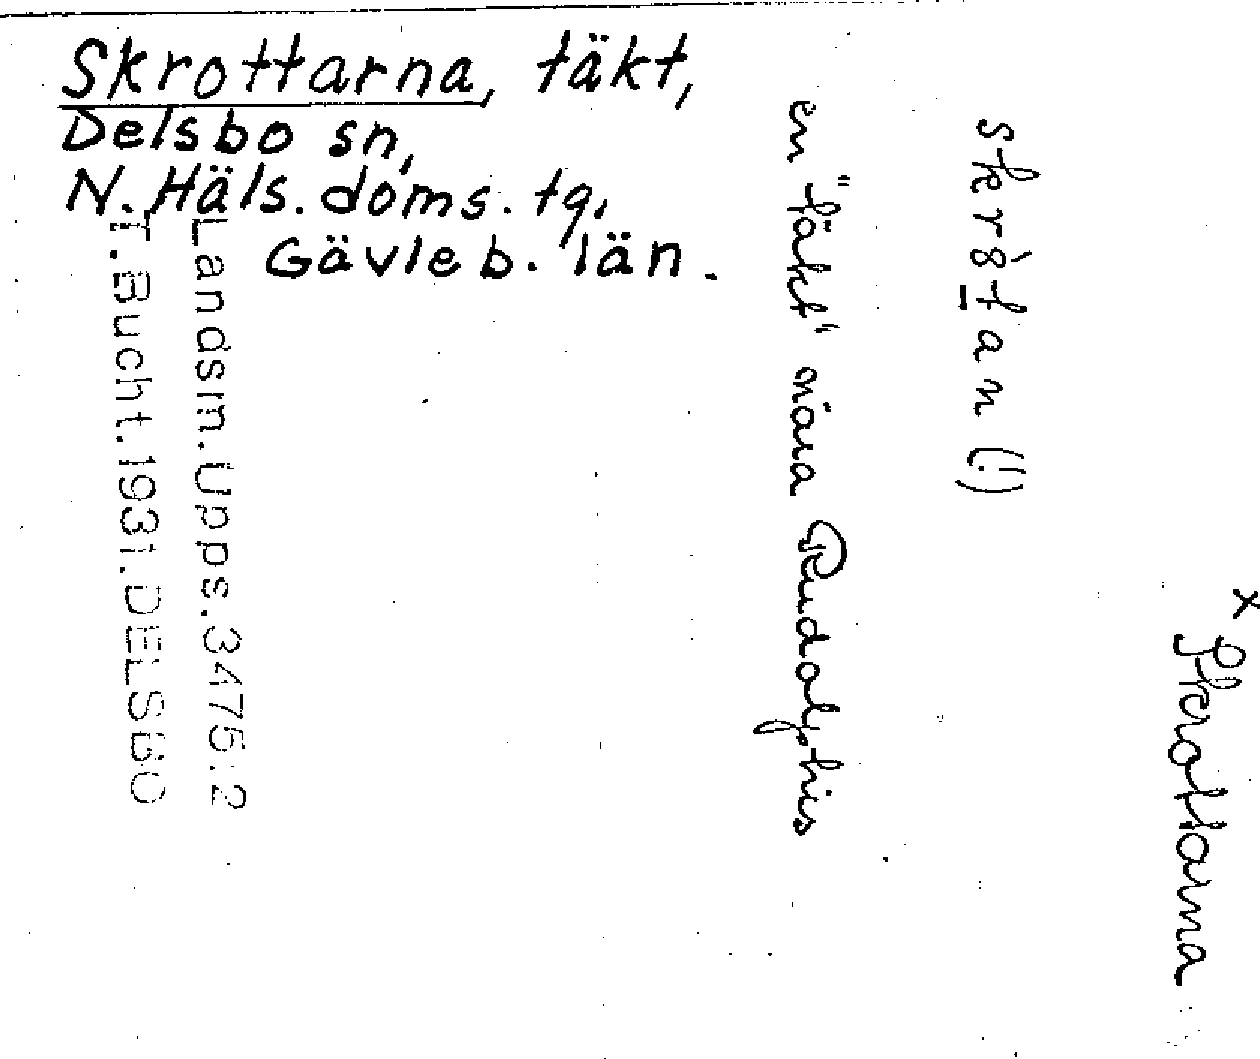 Skrottarna, täkt,
Delsbo sn,
N. Häls. doms. tg.
Gävleb. län.
× Skrottarna
skrò̱tan (!)
en "täkt" nära Rudolphis
Landsm. Upps. 3475:2
T. Bucht. 1931. DELSBO